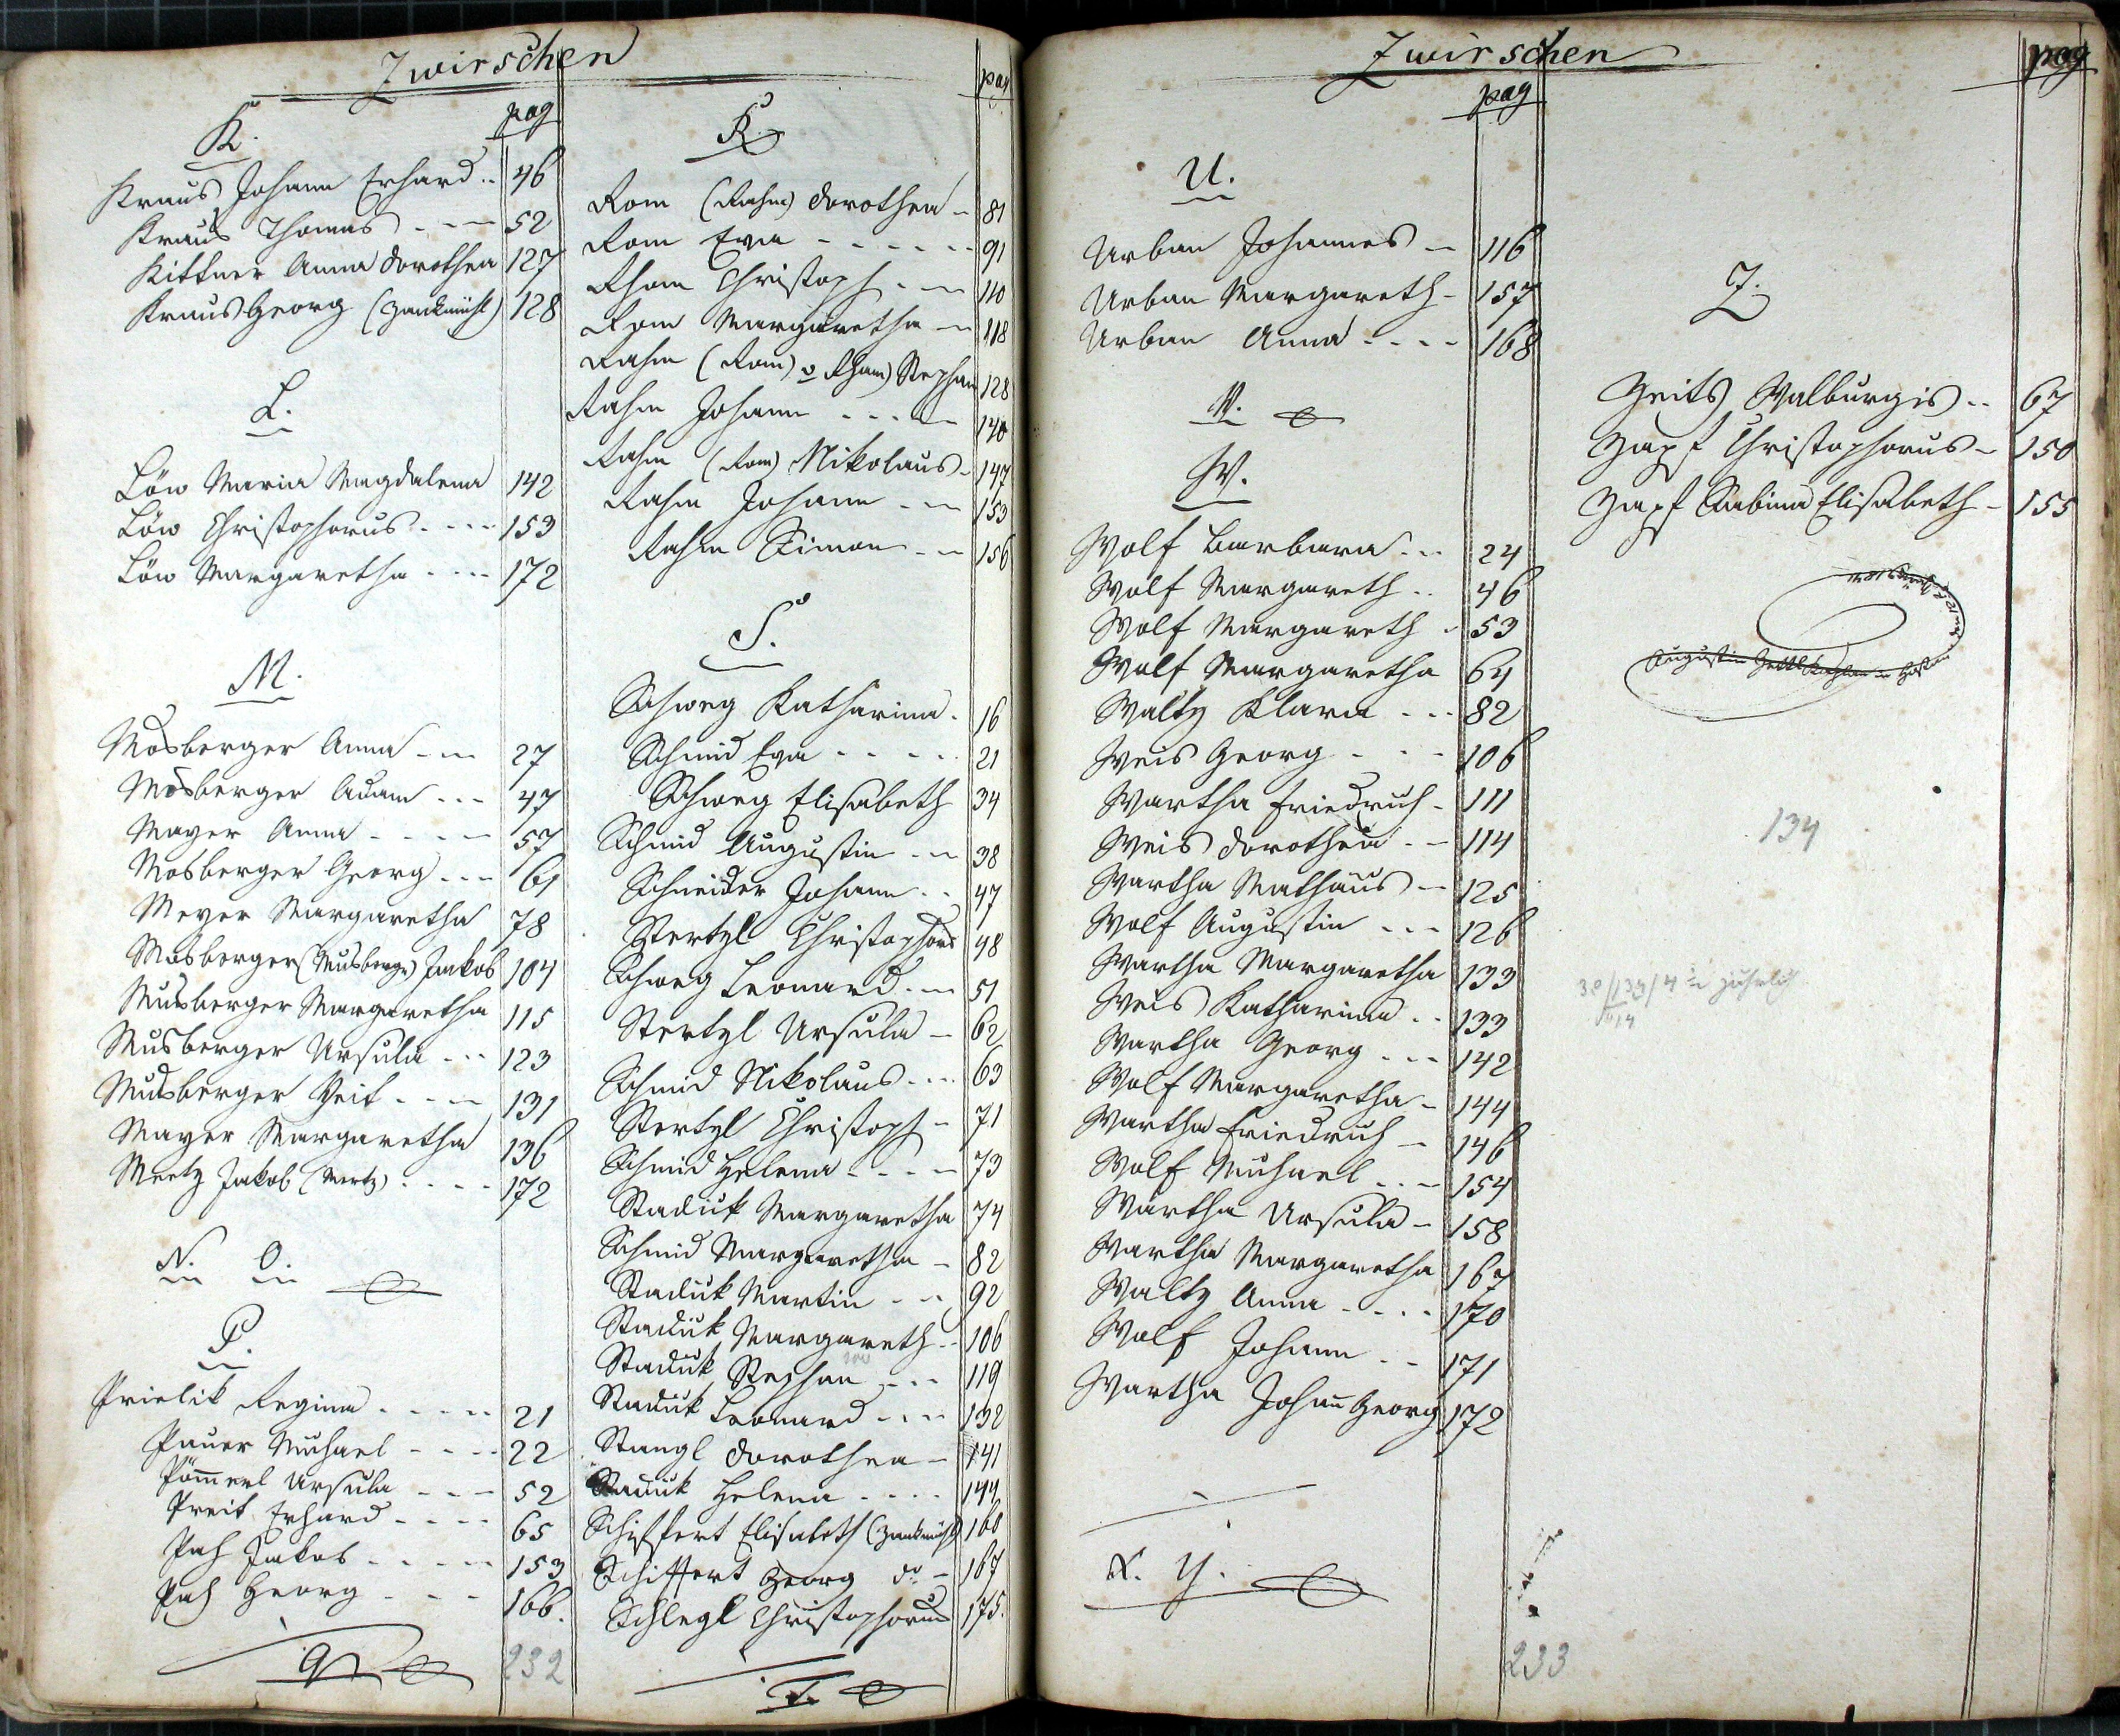 Zwirschen
pag
K.
Kraus Johann Erhard .. 46
Kraus Thomas . - - 52
Kittner Anna Dorothea 127
Kraus Georg (Hankmühl) 128
L.
Löw Maria Magdalena 142
Löw Christophorus - - - - 153
Löw Margaretha - - - - 172
M.
Mosberger Anna - - - 27
Mosberger Adam - - - 47
Mayer Anna - - - - 57
Mosberger Georg - - - 61
Meyer Margaretha 78
Mosberger (Musberger) Jakob 104
Musberger Margaretha 115
Musberger Ursula - - - 123
Musberger Veit - - - - 131
Mayer Margaretha 136
Meetz Jakob (Mertz) - - - - 172
N. O.
P.
Prielik Regina - - - - - 21
Pauer Michael - - - - 22
Pöm̄erl Ursula - - - 52
Preit Erhard - - - - 65
Pach Jakob - - - - - 153
Pach Georg - - - 166.
Q
232
pag
R.
Rom (Rahm) Dorothea - 81
Rom Eva - - - - - - 91
Rham Christoph - - - 110
Rom Margaretha - - 118
Rahm (Rom) v Rham) Stephan 128
Rahm Johann - - - - - 140
Rahm (Rom) Nikolaus - 147
Rahm Johann - - - 153
Rahm Simon - - - 156
S.
Schweg Katharina - 16
Schmid Eva - - - - - 21
Schweg Elisabeth 34
Schmid Augustin - - - 38
Schneider Johann - - 47
Stertzl Christophorus 48
Schweg Leonard - - - 51
Stertzl Ursula - 62
Schmid Nikolaus - - - 63
Stertzl Christoph - 71
Schmid Helena - - - - 73
Staduk Margaretha 74
Schmid Margaretha - 82
Staduk Martin - - - 92
Staduk Margareth - - 106
Staduk Stephan - - - 119
Staduk Leonard - - - - 132
Stangl Dorothea - 141
Staduk Helena - - - - 144
Schiffert Elisabeth (Hankmühl) 160
Schiffert Georg do - 167
Schlegl Christophorus 175.
T.
Zwirschen
pag
U.
Urban Johannes - - 116
Urban Margareth - 157
Urban Anna - - - - 168
V.
W.
Wolf Barbara - - - 24
Wolf Margareth - - 46
Wolf Margareth - 53
Wolf Margaretha 64
Waltz Klara - - - 82
Weis Georg - - - 106
Wartha Friedrich - 111
Weis Dorothea - - 114
Wartha Mathäus - - 125
Wolf Augustin - - - 126
Wartha Margaretha 133
Weis Katharina - - 133
Wartha Georg - - - 142
Wolf Margaretha - 144
Wartha Friedrich - 146
Wolf Michael - - - 154
Wartha Ursula - 158
Wartha Margaretha 167
Waltz Anna - - - - 170
Wolf Johann - - 171
Wartha Johan̄ Georg 172
X. Y.
233
pag
Z.
Zeits Walburgis - - 67
Zapf Christophorus - 150
Zapf Sabina Elisabeth - 155
Augustin
134